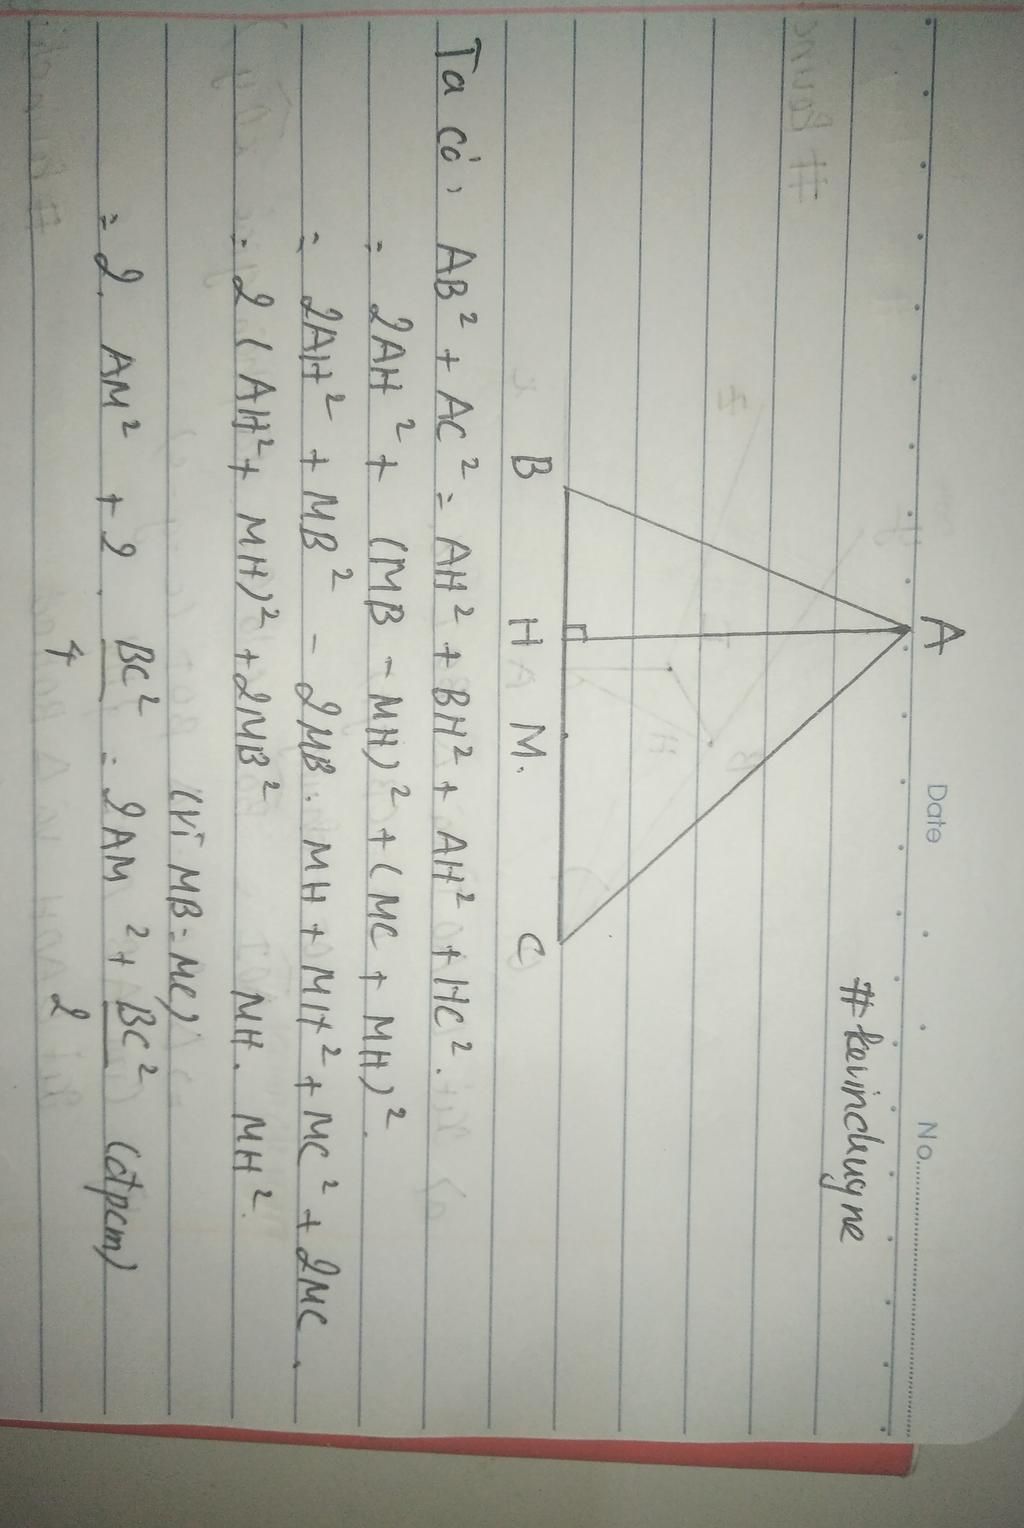 Date No.
#kevinchugne
A
B H M. C
Ta có, AB² + AC² = AH² + BH² + AH² + HC².
= 2AH² + (MB - MH)² + (MC + MH)².
= 2AH² + MB² - 2MB. MH + MH² + MC² + 2MC.
= 2 (AH² + MH)² + 2MB² MH. MH².
(Vì MB = MC)
= 2. AM² + 2. BC²/4 = 2AM² + BC²/2 (đpcm)